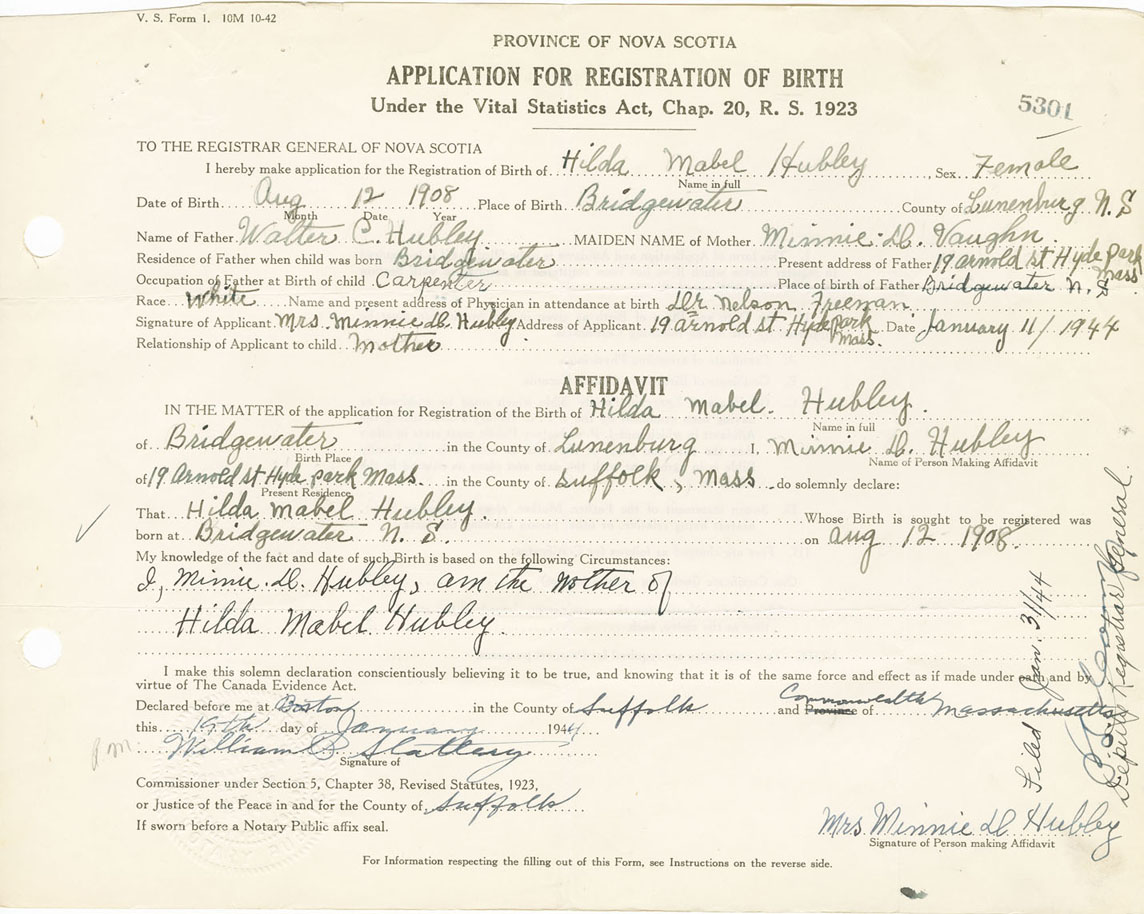 V. S. Form 1. 10M 10-42
PROVINCE OF NOVA SCOTIA
APPLICATION FOR REGISTRATION OF BIRTH
Under the Vital Statistics Act, Chap. 20, R. S. 1923
5301
TO THE REGISTRAR GENERAL OF NOVA SCOTIA
I hereby make application for the Registration of Birth of Hilda Mabel Hubley, Sex Female
Name in full
Date of Birth Aug 12 1908 Place of Birth Bridgewater County of Lunenburg N. S
Month Date Year
Name of Father Walter C. Hubley MAIDEN NAME of Mother Minnie D. Vaughn
Residence of Father when child was born Bridgewater Present address of Father 19 arnold st Hyde Park Mass.
Occupation of Father at Birth of child Carpenter Place of birth of Father Bridgewater N. S.
Race White Name and present address of Physician in attendance at birth Dr Nelson Freeman
Signature of Applicant Mrs. Minnie D. Hubley Address of Applicant 19 arnold st Hyde Park Mass. Date January 11/1944
Relationship of Applicant to child Mother
AFFIDAVIT
IN THE MATTER of the application for Registration of the Birth of Hilda Mabel Hubley.
Name in full
of Bridgewater in the County of Lunenburg I, Minnie D. Hubley
Birth Place Name of Person Making Affidavit
of 19 Arnold st Hyde park Mass. in the County of Suffolk, Mass do solemnly declare:
Present Residence
That Hilda Mabel Hubley. Whose Birth is sought to be registered was
born at Bridgewater N. S. on aug 12 1908.
My knowledge of the fact and date of such Birth is based on the following Circumstances:
I, Minnie D. Hubley, am the Mother of
Hilda Mabel Hubley.
I make this solemn declaration conscientiously believing it to be true, and knowing that it is of the same force and effect as if made under oath and by
virtue of The Canada Evidence Act.
Declared before me at Boston in the County of Suffolk and Province Commonwealth of Massachusetts
this 19th day of January 1944
William Slattery
Signature of
Commissioner under Section 5, Chapter 38, Revised Statutes, 1923,
or Justice of the Peace in and for the County of Suffolk
If sworn before a Notary Public affix seal.
Mrs Minnie D Hubley
Signature of Person making Affidavit
For Information respecting the filling out of this Form, see Instructions on the reverse side.
Filed Jan. 31/44
Deputy Registrar General.